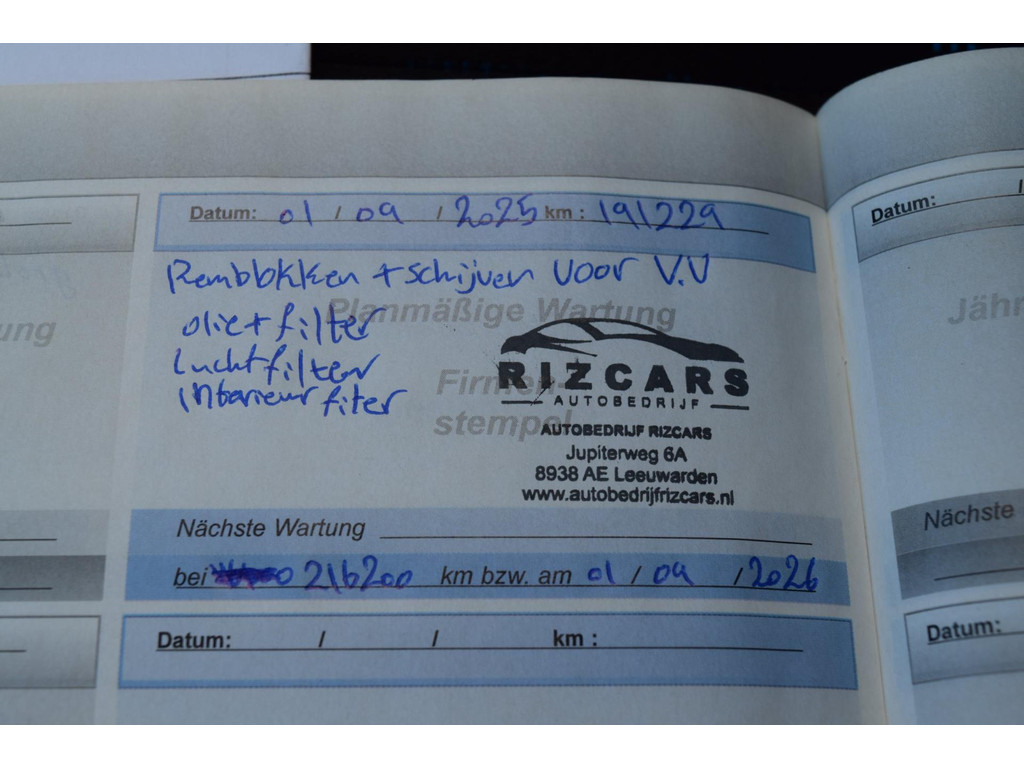 Datum: 01 / 09 / 2025 km : 191229
Datum:
Remblokken + schijven voor V.V
Planmäßige Wartung
olie + filter
luchtfilter
interieur fiter
Firmen-
stempel
ung
Jähr
RIZCARS
AUTOBEDRIJF
AUTOBEDRIJF RIZCARS
Jupiterweg 6A
8938 AE Leeuwarden
www.autobedrijfrizcars.nl
Nächste Wartung
Nächste
bei 216200 km bzw. am 01 / 09 / 2026
Datum: / / km :
Datum: